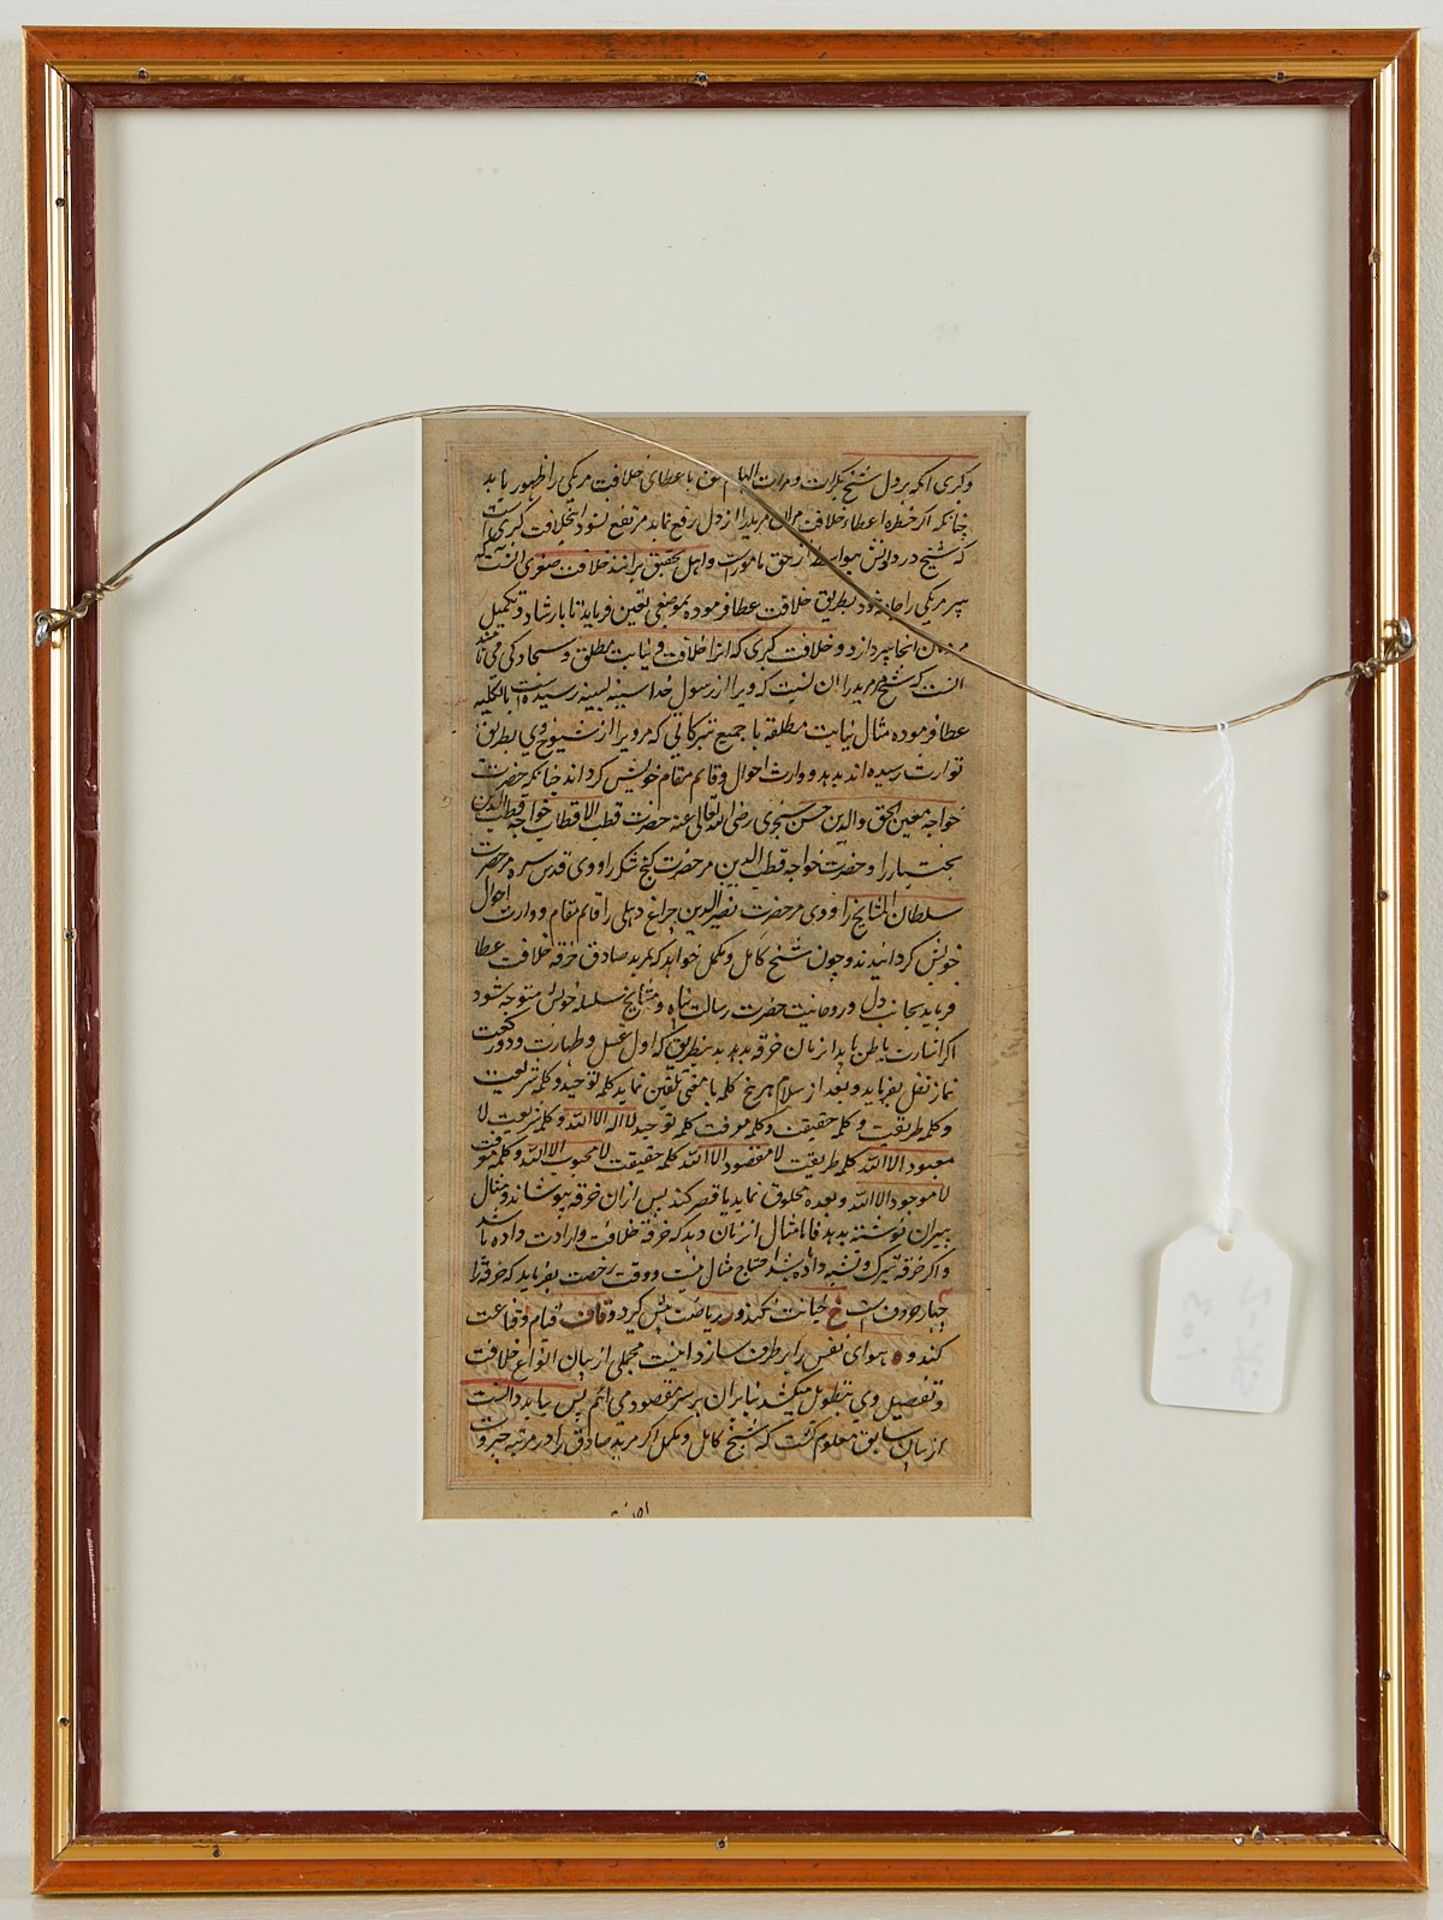 و کبری آنکه بر دل شیخ بکرات و مرات الهام شود با عطای خلافت مر یکی را ظهور یابد
چنانکه اگر خطره اعطاء خلافت مران مرید را از دل رفع نماید مرتفع نشود این خلافت کبری است
که شیخ در دادنش بواسطه از حق مامورست و اهل تحقیق برانند خلافت صغری آنست که
پیر مریکی را جانب خود بطریق خلافت عطا فرموده بموضعی تعین فرماید تا بارشاد و تکمیل
مریدان آنجا پردازد و خلافت کبری که انرا خلافت و نیابت مطلق و سجادگی می نامند
آنست که شیخ مرید را ان نسبت که ویرا از رسول خدا سینه بسینه رسیده است بالکلیه
عطا فرموده مثال نیابت مطلقه با جمیع تبرکاتی که مرویرا از شیوخ وی بطریق
توارث رسیده اند بدهد و وارث احوال و قایم مقام خویش گرداند چنانکه حضرت
خواجه معین الحق والدین حسن سنجری رضی الله تعالی عنه حضرت قطب الاقطاب خواجه قطب الدین
بختیار را و حضرت خواجه قطب الدین مر حضرت گنج شکر را و وی قدس سره مر حضرت
سلطان المشایخ را و وی مر حضرت نصیر الدین چراغ دهلی را قایم مقام و وارث احوال
خویش گردانیدند و چون شیخ کامل و مکمل خواهد که بمرید صادق خرقه خلافت عطا
فرماید بجانب دل و روحانیت حضرت رسالت پناه و مشایخ سلسله خویش متوجه شود
اگر اشارت باطن یابد از زمان خرقه بدهد بدینطریق که اول غسل و طهارت و دو رکعت
نماز نفل بفرماید و بعد از سلام هر پنج کلمه با معنی تلقین نماید کلمه توحید و کلمه شریعت
و کلمه طریقت و کلمه حقیقت و کلمه معرفت کلمه توحید لا اله الا الله و کلمه شریعت لا
معبود الا الله کلمه طریقت لا مقصود الا الله کلمه حقیقت لا محبوب الا الله و کلمه معرفت
لا موجود الا الله و بعده محلوق نماید یا قصر کند پس ازان خرقه بپوشاند و مثال
پیران نوشته بدهد فاما مثال از زمان دهد که خرقه خلافت و ارادت داده باشد
و اگر خرقه تبرک و تشبه داده باشد محتاج مثال نیست و وقت رخصت بفرماید که خرقه را
چهار حروف است خ خیانت نکند و ر ریاضت پیش گیرد و قاف قیام و قناعت
کند و ه هوای نفس را برطرف سازد اینست مجملی از بیان انواع خلافت
و تفصیل وی بتطویل میکشد بنابران بر سر مقصود می ائم پس بباید دانست
از بیان سابق معلوم گشت که شیخ کامل و مکمل اگر مرید صادق را در مرتبه جبروت